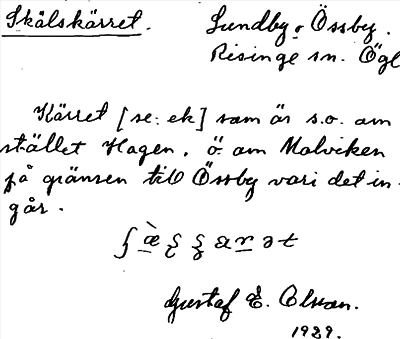 Skålskärret. Lundby o Össby.
Risinge sn. Ögl
Kärret [se: ek] som är s.o. om
stället Hagen, ö. om Malviken
på gränsen till Össby vari det in-
går.
Gustaf E. Olson.
1929.